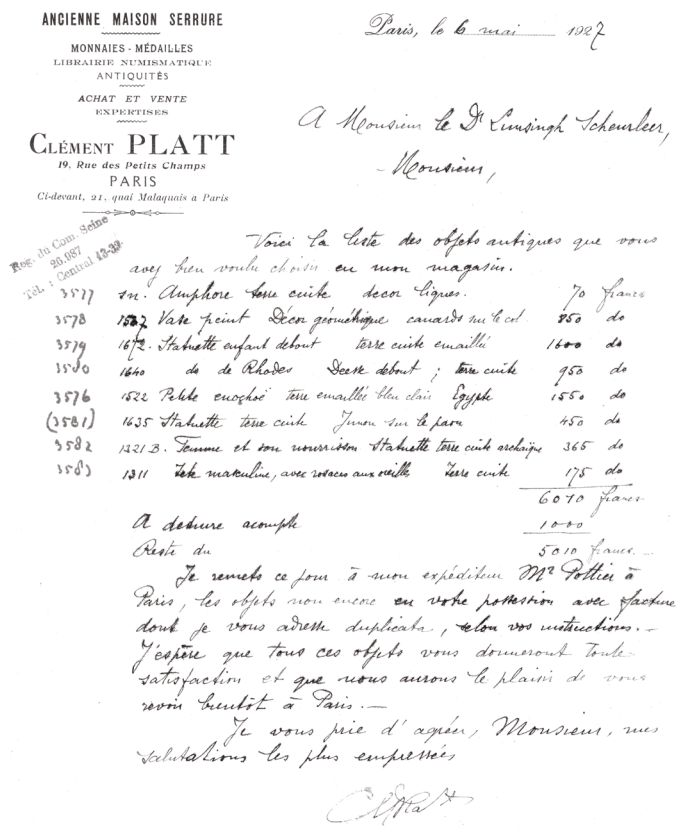 ANCIENNE MAISON SERRURE
MONNAIES - MÉDAILLES
LIBRAIRIE NUMISMATIQUE
ANTIQUITÉS
ACHAT ET VENTE
EXPERTISES
CLÉMENT PLATT
19, Rue des Petits Champs
PARIS
Ci-devant, 21, quai Malaquais à Paris
Reg. du Com. Seine
26.987
Tél. : Central 43-32
Paris, le 6 mai 1927
A Monsieur le Dr Lunsingh Scheurleer,
Monsieur,
Voici la liste des objets antiques que vous
avez bien voulu choisir en mon magasin.
3577 sn. Amphore terre cuite decor lignes. 70 francs
3578 1527 Vase peint Décor géométrique canards sur le col 850 do
3579 1672. Statuette enfant debout terre cuite emaillée 1600 do
3580 1640 do de Rhodes Deesse debout ; terre cuite 950 do
3576 1522 Petite enochoë terre emaillée bleu clair Egypte 1550 do
(3581) 1635 Statuette terre cuite Junon sur le paon 450 do
3582 1321 B. Femme et son nourrisson Statuette terre cuite archaïque 365 do
3583 1311 Tete masculine, avec rosaces aux oreilles Terre cuite 175 do
6010 francs
A deduire acompte 1000
Reste du 5010 francs. —
Je remets ce jour à mon expéditeur Mr Pottier à
Paris, les objets non encore en votre possession avec facture
dont je vous adresse duplicata, selon vos instructions. —
J'espère que tous ces objets vous donneront toute
satisfaction et que nous aurons le plaisir de vous
revoir bientôt à Paris. —
Je vous prie d'agréer, Monsieur, mes
salutations les plus empressées
Cl Platt